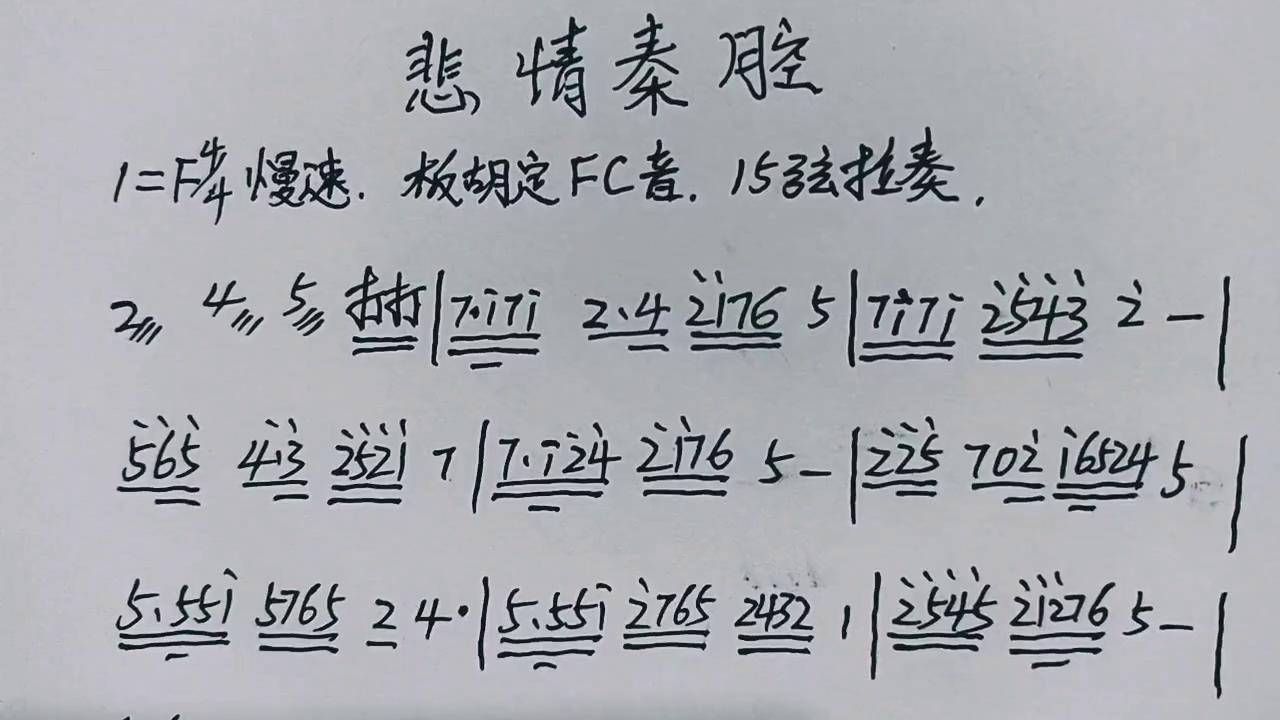 悲情秦腔
1=F4/4慢速. 板胡定FC音. 15弦拉奏.
2 4 5 打打|7.i7i 2.4 2̇i76 5|7i7i 2̇5̇4̇3̇ 2̇ -|
5̇6̇5̇ 4̇·3̇ 2̇5̇2̇i 7|7.i2̇4̇ 2̇i76 5-|2̇2̇5̇ 702̇ i6524 5|
5.55i 5765 2 4·|5.55i 2̇765 2432 1|2̇5̇4̇5̇ 2̇i2̇76 5-|